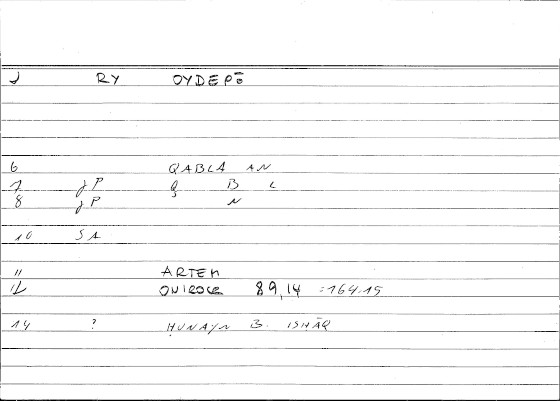 J RY OYDEPŌ
6 QABLA AN
7 JP Q B L
8 JP N
10 SA
11 ARTEM
12 ONIROCR 89,14 =164.15
14 ? ḤUNAYN B. ISḤĀQ